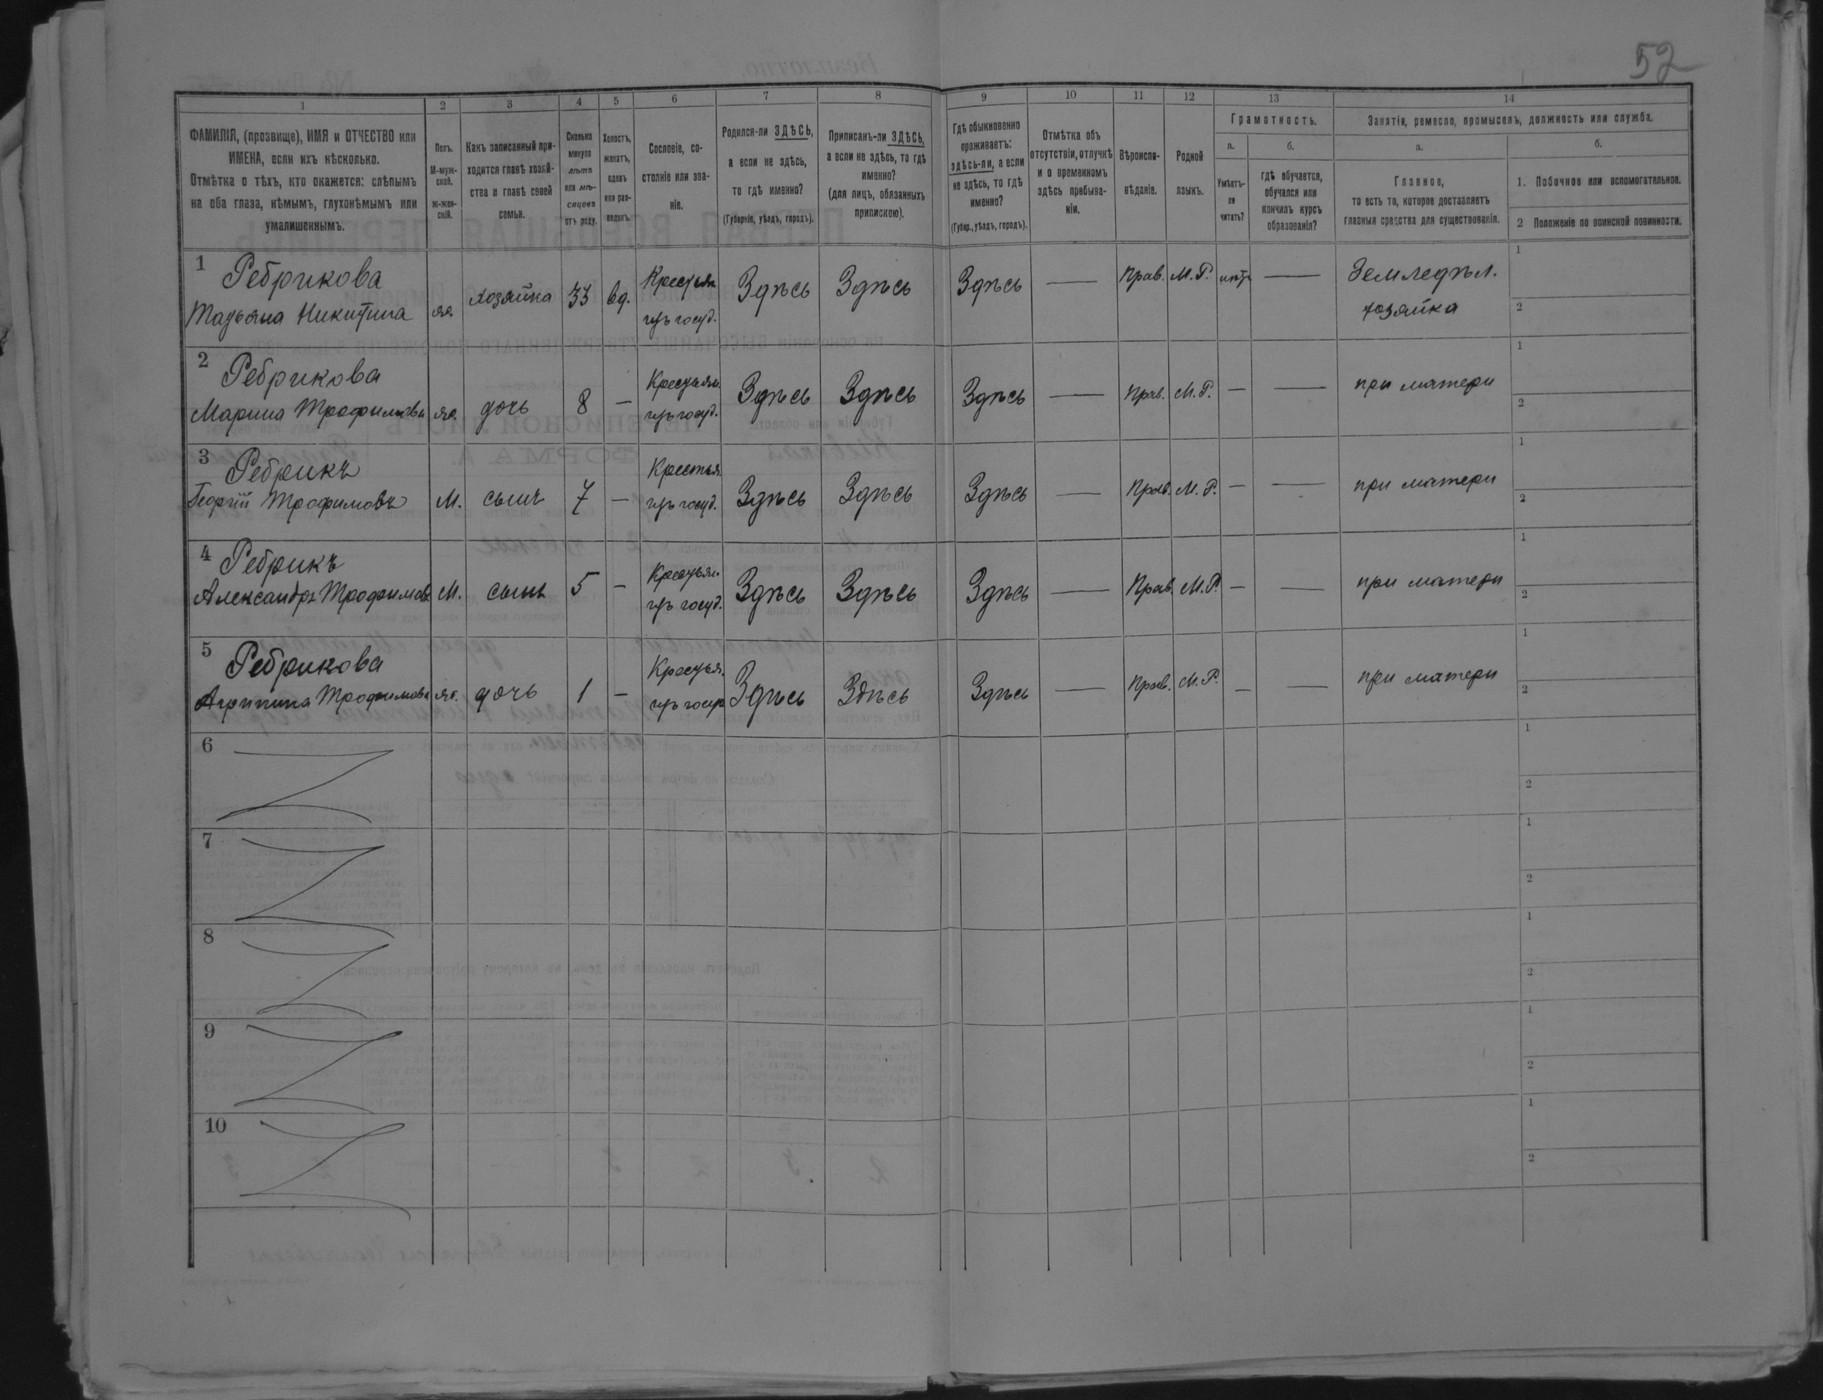 52
1 2 3 4 5 6 7 8 9 10 11 12 13 14
ФАМИЛІЯ, (прозвище), ИМЯ и ОТЧЕСТВО или
ИМЕНА, если ихъ нѣсколько.
Отмѣтка о тѣхъ, кто окажется: слѣпымъ
на оба глаза, нѣмымъ, глухонѣмымъ или
умалишеннымъ.
Полъ.
М-муж-
ской.
Ж-жен-
скій.
Какъ записанный при-
ходится главѣ хозяй-
ства и главѣ своей
семьи.
Сколько
минуло
лѣтъ
или мѣ-
сяцевъ
отъ роду.
Холостъ,
женатъ,
вдовъ
или раз-
веденъ.
Сословіе, со-
стояніе или зва-
ніе.
Родился-ли ЗДѢСЬ,
а если не здѣсь,
то гдѣ именно?
(Губернія, уѣздъ, городъ).
Приписанъ-ли ЗДѢСЬ,
а если не здѣсь, то гдѣ
именно?
(для лицъ, обязанныхъ
припискою).
Гдѣ обыкновенно
проживаетъ:
здѣсь-ли, а если
не здѣсь, то гдѣ
именно?
(Губер., уѣздъ, городъ).
Отмѣтка объ
отсутствіи, отлучкѣ
и о временномъ
здѣсь пребыва-
ніи.
Вѣроиспо-
вѣданіе.
Родной
языкъ.
Грамотность.
а.
Умѣетъ-
ли
читать?
б.
гдѣ обучается,
обучался или
кончилъ курсъ
образованія?
Занятія, ремесло, промыселъ, должность или служба.
а.
Главное,
то есть то, которое доставляетъ
главныя средства для существованія.
б.
1. Побочное или вспомогательное.
2 Положеніе по воинской повинности.
1 Ребрикова Крестьян. Земледѣл. 1
Татьяна Никитина ж. хозяйка 33 вд. изъ госуд. Здѣсь Здѣсь Здѣсь — Прав. М.Р. нѣтъ — хозяйка 2
2 Ребрикова Крестьян. 1
Марина Трофимова ж. дочь 8 — изъ госуд. Здѣсь Здѣсь Здѣсь — Прав. М.Р. — — при матери 2
3 Ребрикъ Крестья. 1
Георгій Трофимовъ М. сынъ 7 — изъ госуд. Здѣсь Здѣсь Здѣсь — Прав. М.Р. — — при матери 2
4 Ребрикъ Крестьян. 1
Александръ Трофимовъ М. сынъ 5 — изъ госуд. Здѣсь Здѣсь Здѣсь — Прав. М.Р. — — при матери 2
5 Ребрикова Крестья. 1
Агрипина Трофимова ж. дочь 1 — изъ госуд. Здѣсь Здѣсь Здѣсь — Прав. М.Р. — — при матери 2
6 1
2
7 1
2
8 1
2
9 1
2
10 1
2